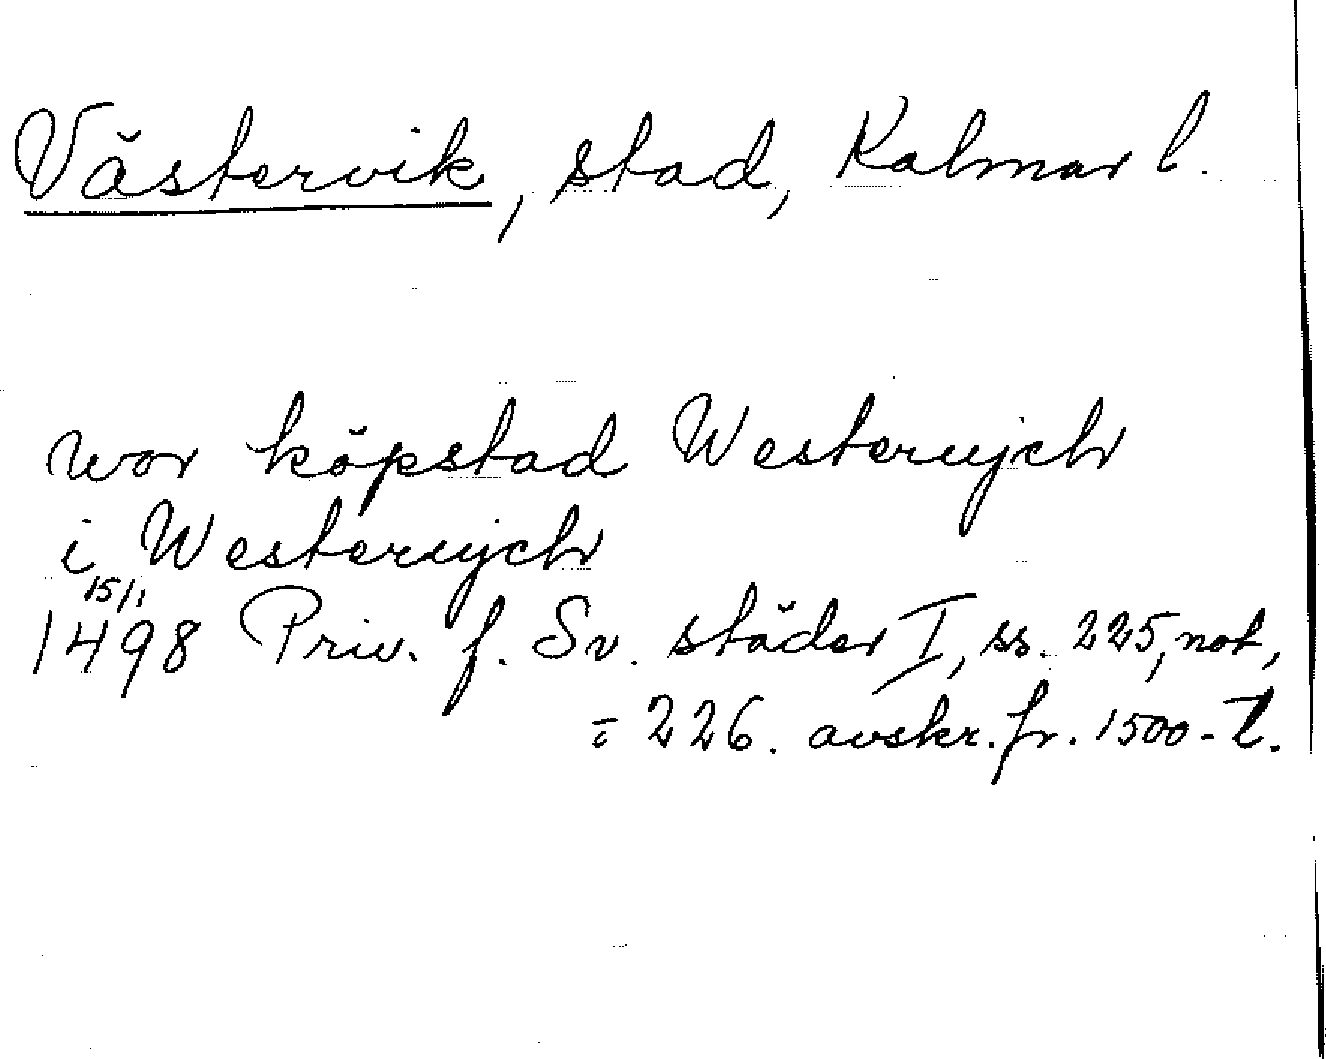 Västervik, stad, Kalmar l.
wor köpstad Westeruijch
i Westeruijch
15/1
1498 Priv. f. Sv. städer I, ss. 225, not,
= 226. avskr. fr. 1500-t.